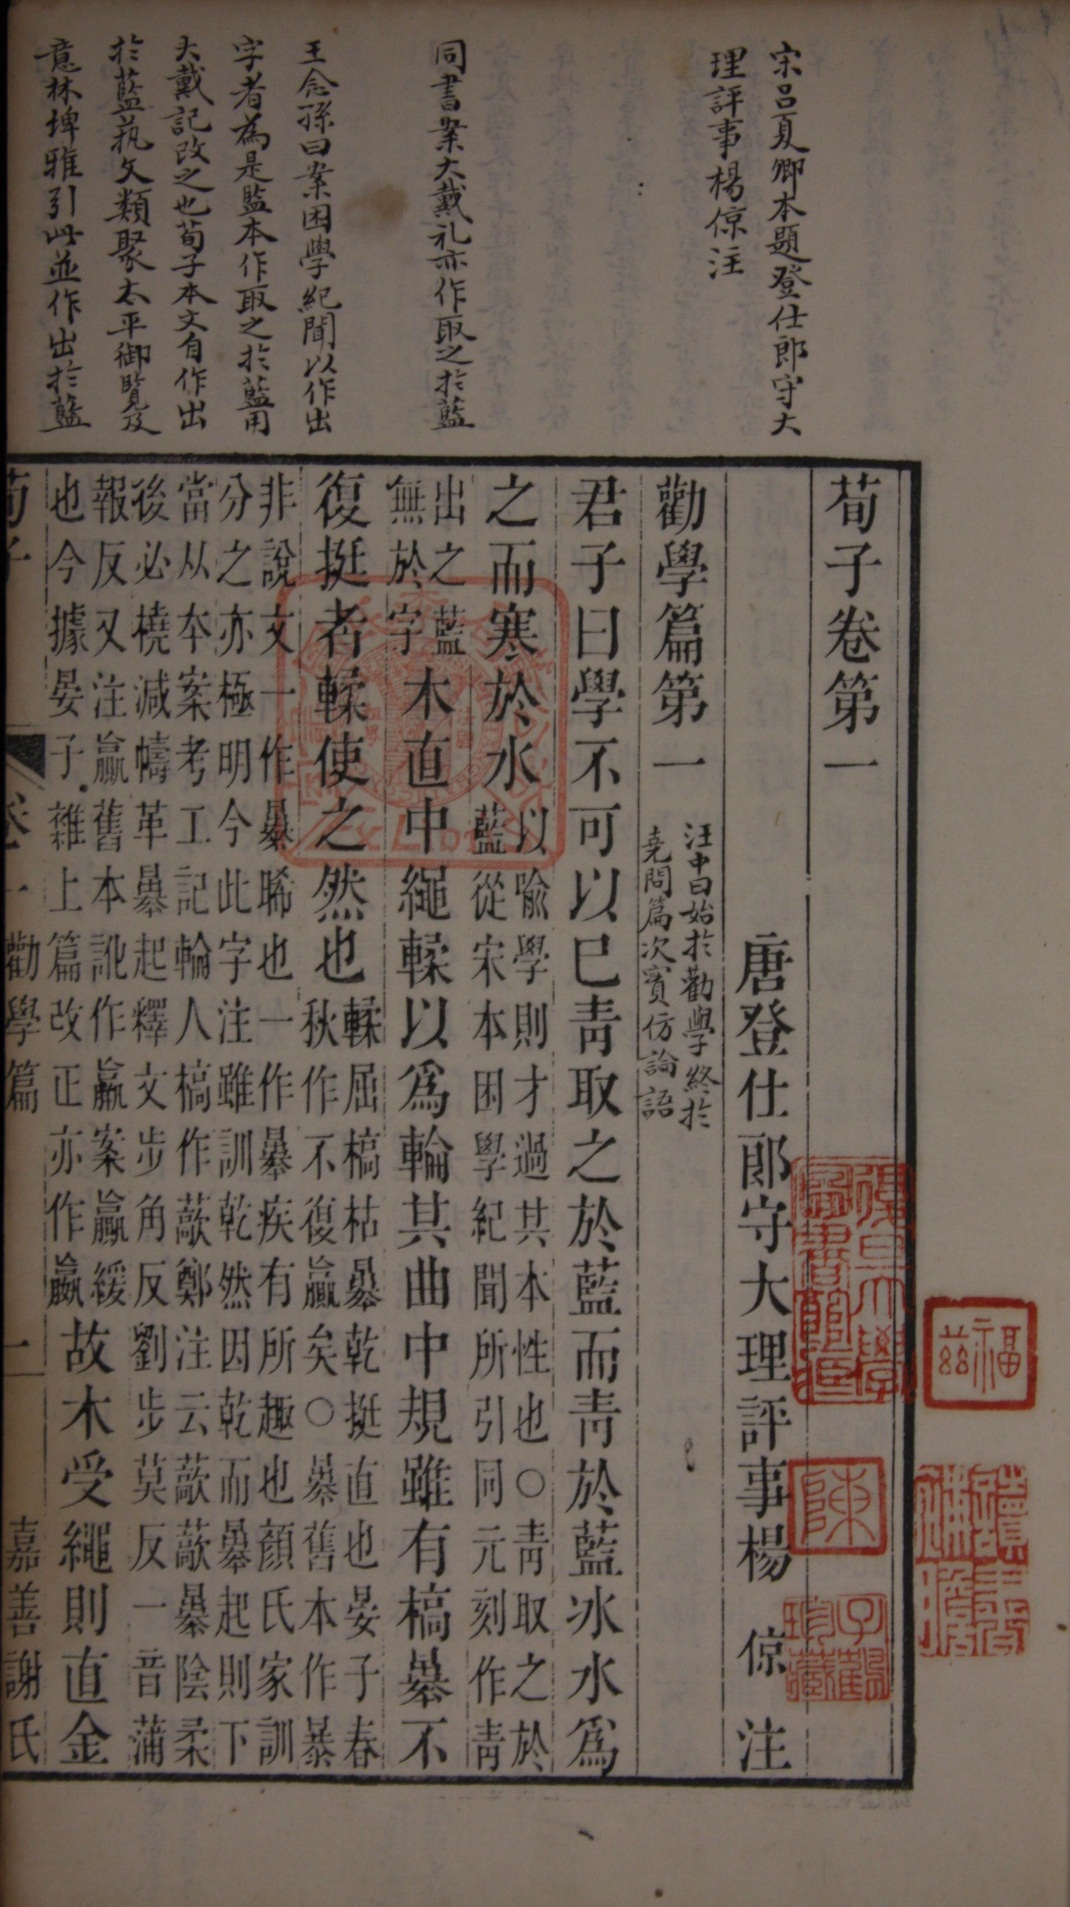 宋呂夏卿本題登仕郎守大
理評事楊倞注
同書案大戴礼亦作取之於藍
王念孫曰案困學紀聞以作出
字者為是監本作取之於藍用
大戴記改之也荀子本文自作出
於藍藝文類聚太平御覽及
意林埤雅引此並作出於藍
荀子卷第一
唐登仕郎守大理評事楊倞注
勸學篇第一
汪中曰始於勸學終於
堯問篇次實仿論語
君子曰學不可以已靑取之於藍而靑於藍冰水爲
之而寒於水
以喻學則才過其本性也○靑取之於
藍從宋本困學紀聞所引同元刻作靑
出之藍
無於字
木直中繩輮以爲輪其曲中規雖有槁暴不
復挺者輮使之然也
輮屈槁枯暴乾挺直也晏子春
秋作不復贏矣○暴舊本作暴
非說文一作暴晞也一作暴疾有所趣也顏氏家訓
分之亦極明今此字注雖訓乾然因乾而暴起則下
當从本案考工記輪人槁作藃鄭注云藃藃暴陰柔
後必橈減幬革暴起釋文步角反劉步莫反一音蒲
報反又注贏舊本訛作羸案贏緩
也今據晏子雜上篇改正亦作嬴
故木受繩則直金
荀子
卷一
勸學篇
一
嘉善謝氏
福茲
陳